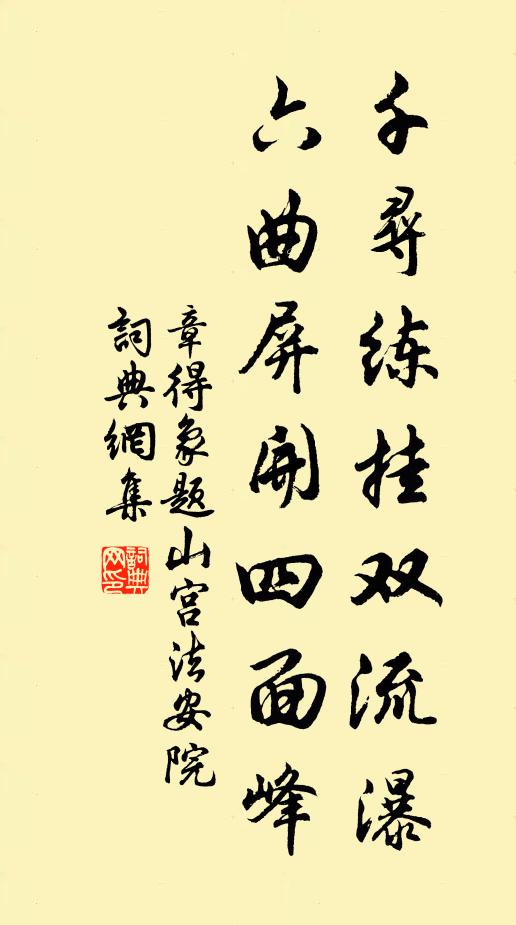 千尋练挂双流瀑
六曲屏開四面峰
章得象题山宫法安院
詞典網集
詞典网印